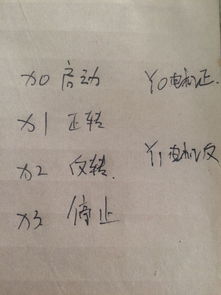 X0 启动 Y0电机正.
X1 正转
X2 反转. Y1电机反
X3 停止